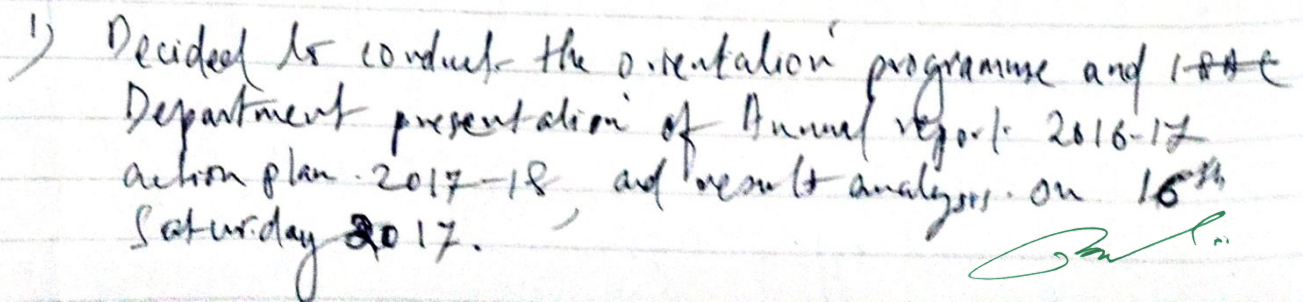 1) Decided to conduct the orientation programme and
Department presentation of Annual report 2016-17
action plan 2017-18, and result analysis on 16th
Saturday 2017.